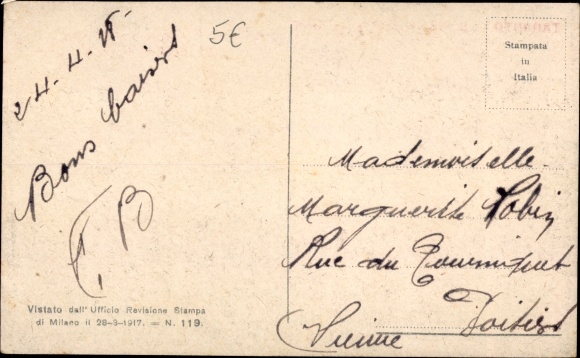 24-4-18-
Bons baisers
F, B
5€
Stampata
in
Italia
Mademoiselle
Marguerite Robin
Rue du Tourniquet
Poitiers
Vienne
Vistato dall' Ufficio Revisione Stampa
di Milano il 28-3-1917. — N. 119.